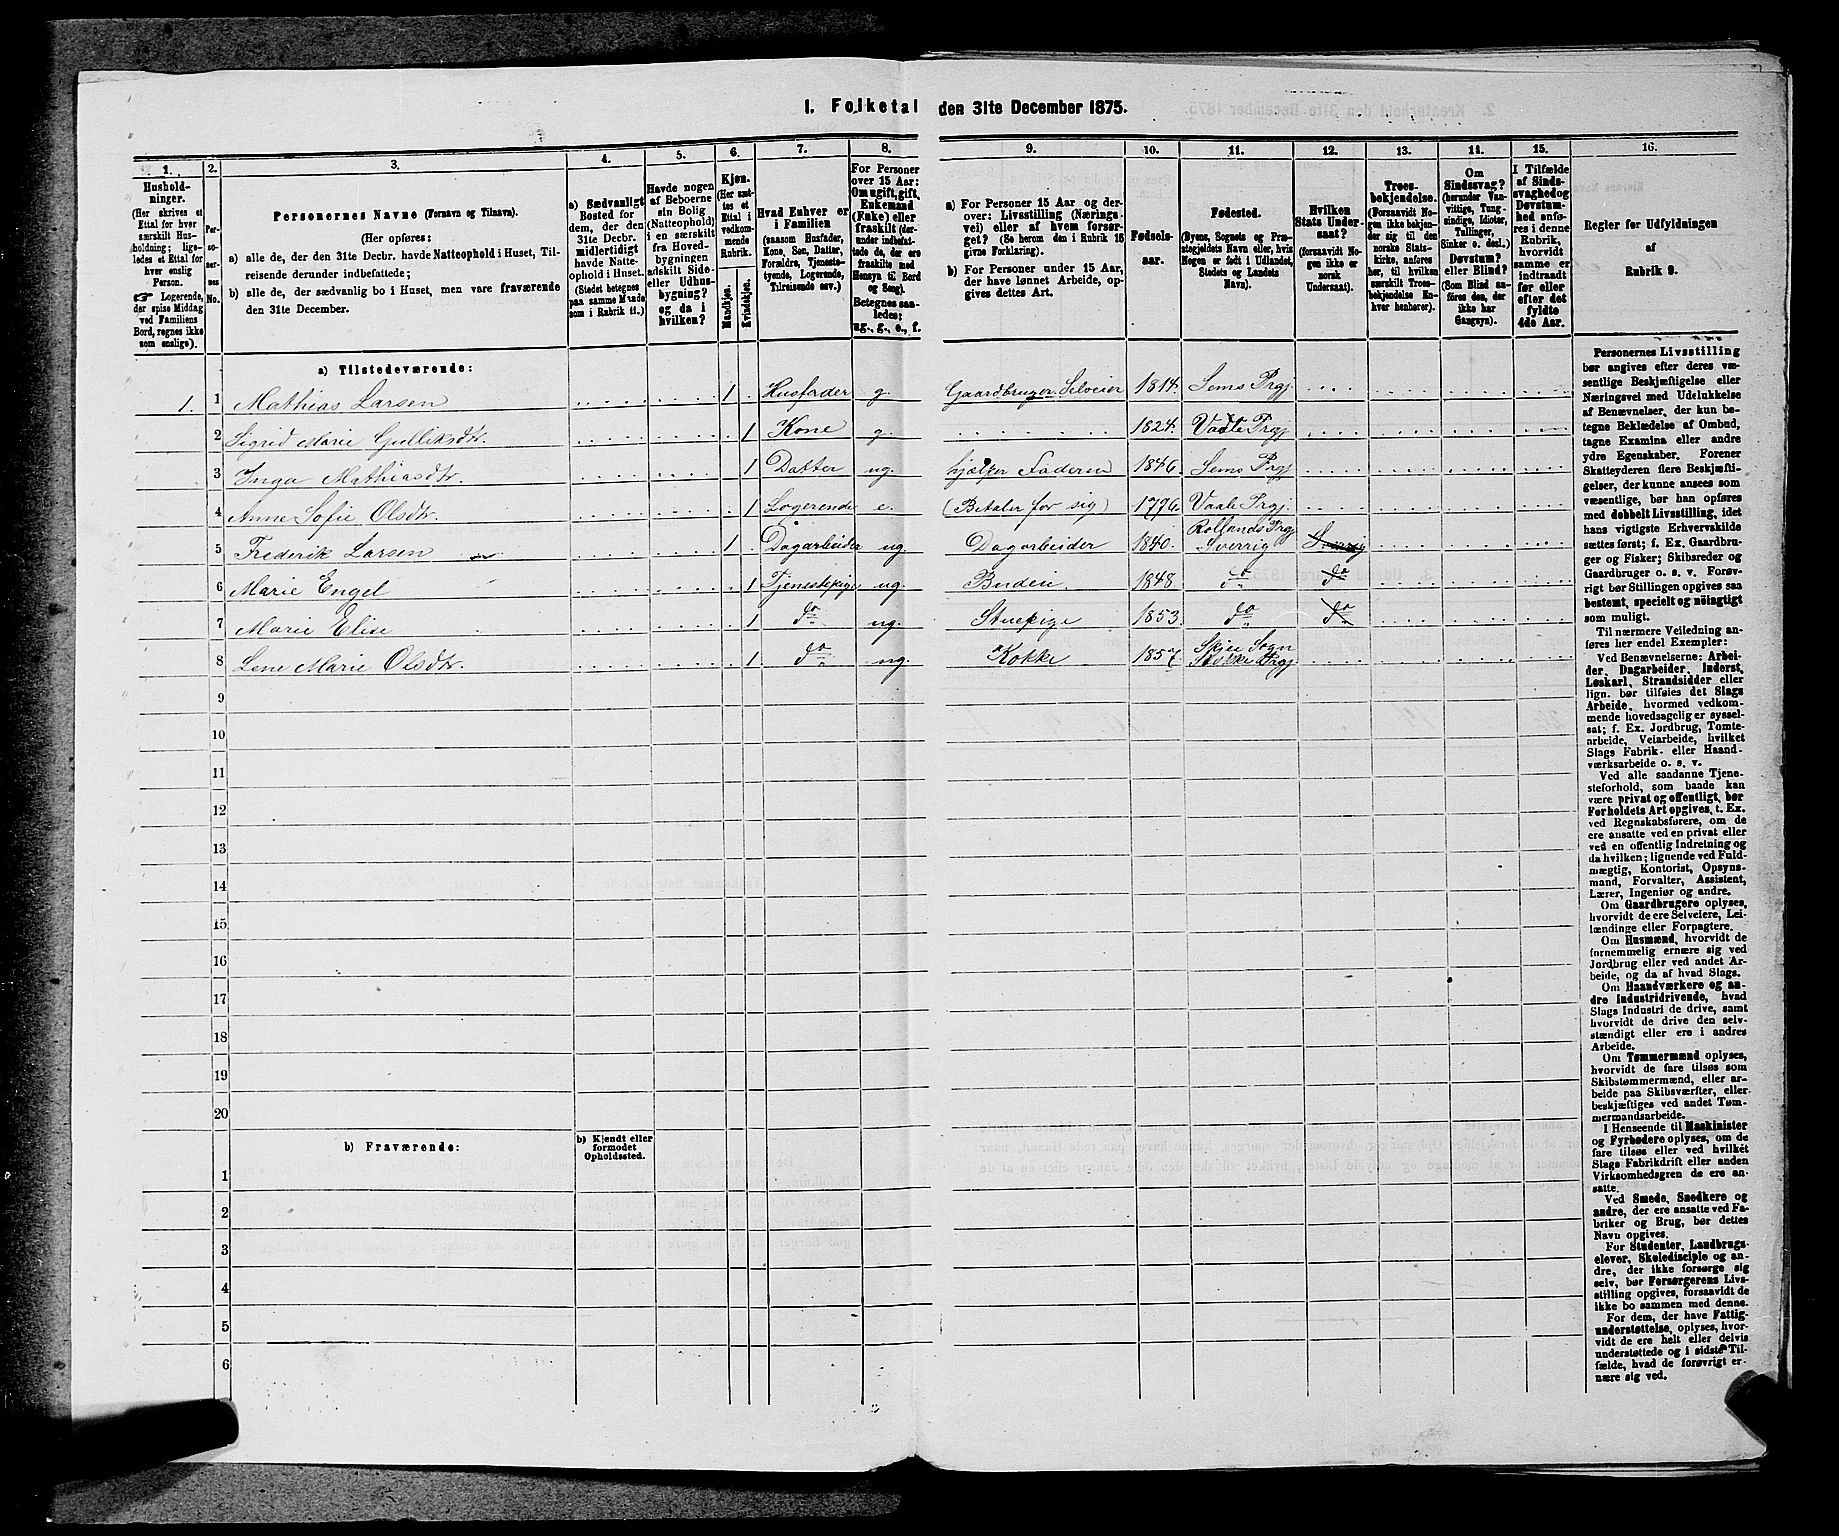 1. Folketal den 31te December 1875.
1. 2. 3. 4. 5. 6. 7. 8. 9. 10. 11. 12. 13. 14. 15. 16.
Hushold-
ninger.
(Her skrives et
Ettal for hver
særskilt Hus-
holdning; lige-
ledes et Ettal for
hver enslig
Person.
☞ Logerende,
der spise Middag
ved Familiens
Bord, regnes ikke
som enslige).
Per-
so-
ner-
nes
No.
Personernes Navne (Fornavn og Tilnavn).
(Her opføres:
a) alle de, der den 31te Decbr. havde Natteophold i Huset, Til-
reisende derunder indbefattede;
b) alle de, der sædvanlig bo i Huset, men vare fraværende
den 31te December.
a) Sædvanligt
Bosted for
dem, der den
31te Decbr.
midlertidigt
havde Natte-
ophold i Huset.
(Stedet betegnes
paa samme Maade
som i Rubrik 11.)
Havde nogen
af Beboerne
sin Bolig
(Natteophold)
i en særskilt
fra Hoved-
bygningen
adskilt Side-
eller Udhus-
bygning?
og da i
hvilken?
Kjøn.
(Her sæt-
tes et
Ettal i
vedkom-
mende
Rubrik.
Mandkjøn.
Kvindekjøn.
Hvad Enhver er
i Familien
(saasom Husfader,
Kone, Søn, Datter,
Forældre, Tjeneste-
tyende, Logerende,
Tilreisende osv.)
For Personer
over 15 Aar:
Om ugift, gift,
Enkemand
(Enke) eller
fraskilt (der-
under indbefat-
tede de, der ere
fraskilte med
Hensyn til Bord
og Seng).
Betegnes saa-
ledes:
ug., g., e., f.
a) For Personer 15 Aar og der-
over: Livsstilling (Nærings-
vei) eller af hvem forsør-
get? (Se herom den i Rubrik 16
givne Forklaring).
b) For Personer under 15 Aar,
der have lønnet Arbeide, op-
gives dettes Art.
Fødsels-
aar.
Fødested.
(Byens, Sognets og Præ-
stegjeldets Navn eller, hvis
Nogen er født i Udlandet,
Stedets og Landets
Navn).
Hvilken
Stats Under-
saat?
(forsaavidt No-
gen ikke er
norsk
Undersaat).
Troes-
bekjendelse.
(Forsaavidt No-
gen ikke bekjen-
der sig til den
norske Stats-
kirke, anføres
her, til hvilken
særskilt Troes-
bekjendelse En-
hver henhører).
Om
Sindssvag?
(herunder Van-
vittige, Tung-
sindige, Idioter,
Tullinger,
Sinker o. desl.)
Døvstum?
eller Blind?
(Som Blind an-
føres den, der
ikke har
Gangsyn).
I Tilfælde
af Sinds-
svaghed og
Døvstum-
hed anfø-
res i denne
Rubrik,
hvorvidt
samme er
indtraadt
før eller
efter det
fyldte
4de Aar.
Regler for Udfyldningen
af
Rubrik 9.
a) Tilstedeværende:
1. 1 Mathias Larsen 1 Husfader g. Gaardbruger Selveier 1814. Sems Prgj.
2 Sigrid Marie Gulliksdtr. 1 Kone g. 1824. Vaale Prgj
3 Inga Mathiasdtr. 1 Datter ug. hjælper Faderen 1846. Sems Prgj
4 Anne Sofie Olsdtr. 1 Logerende e. (Betaler for sig) 1796. Vaale Prgj.
5 Frederik Larsen 1 Dagarbeider ug. Dagarbeider 1840. Rollands Prgj Sverrig Sverrig
6 Marie Engel 1 Tjenestepige ug. Budeie 1848. do do
7 Marie Elise 1 do ug. Stuepige 1853. do do
8 Lene Marie Olsdtr. 1 do ug. Kokke Sogn Prgj.
9
10
11
12
13
14
15
16
17
18
19
20
b) Fraværende:
b) Kjendt eller
formodet
Opholdssted.
1
2
3
4
5
6
Personernes Livsstilling
bør angives efter deres væ-
sentlige Beskjæftigelse eller
Næringsvei med Udelukkelse
af Benævnelser, der kun be-
tegne Beklædelse af Ombud,
tagne Examina eller andre
ydre Egenskaber. Forener
Skatteyderen flere Beskjæfti-
gelser, der kunne ansees som
væsentlige, bør han opføres
med dobbelt Livsstilling, idet
hans vigtigste Erhvervskilde
sættes først; f. Ex. Gaardbru-
ger og Fisker; Skibsreder og
Gaardbruger o. s. v. Forøv-
rigt bør Stillingen opgives saa
bestemt, specielt og nöiagtigt
som muligt.
Til nærmere Veiledning an-
føres her endel Exempler:
Ved Benævnelserne: Arbei-
der, Dagarbeider, Inderst,
Løskarl, Strandsidder eller
lign. bør tilføies det Slags
Arbeide, hvormed vedkom-
mende hovedsagelig er syssel-
sat; f. Ex. Jordbrug, Tomte-
arbeide, Veiarbeide, hvilket
Slags Fabrik- eller Haand-
værksarbeide o. s. v.
Ved alle saadanne Tjene-
steforhold, som baade kan
være privat og offentligt, bør
Forholdets Art opgives, t. Ex.
ved Regnskabsførere, om de
ere ansatte ved en privat eller
ved en offentlig Indretning og
da hvilken; lignende ved Fuld-
mægtig, Kontorist, Opsyns-
mand, Forvalter, Assistent,
Lærer, Ingeniør og andre.
Om Gaardbrugere oplyses,
hvorvidt de ere Selveiere, Lei-
lændinge eller Forpagtere.
Om Husmænd, hvorvidt de
fornemmelig ernære sig ved
Jordbrug eller ved andet Ar-
beide, og da af hvad Slags.
Om Haandværkere og an-
dre Industridrivende, hvad
Slags Industri de drive, samt
hvorvidt de drive den selv-
stændigt eller ere i andres
Arbeide.
Om Tømmermænd oplyses,
hvorvidt de fare tilsøs som
Skibstømmermænd, eller ar-
beide paa Skibsværfter, eller
beskjæftiges ved andet Tøm-
mermandsarbeide.
I Henseende til Maskinister
og Fyrbødere oplyses, om de
fare tilsøs eller ved hvilket
Slags Fabrikdrift eller anden
Virksomhedsgren de ere an-
satte.
Ved Smede, Snedkere og
andre, der ere ansatte ved Fa-
briker og Brug, bør dettes
Navn opgives.
For Studenter, Landbrugs-
elever, Skoledisciple og an-
dre, der ikke forsørge sig
selv, bør Forsørgerens Livs-
stilling opgives, forsaavidt de
ikke bo sammen med denne.
For dem, der have Fattig-
understøttelse, oplyses, hvor-
vidt de ere helt eller delvis
understøttede og i sidste Til-
fælde, hvad de forøvrigt er-
nære sig ved.